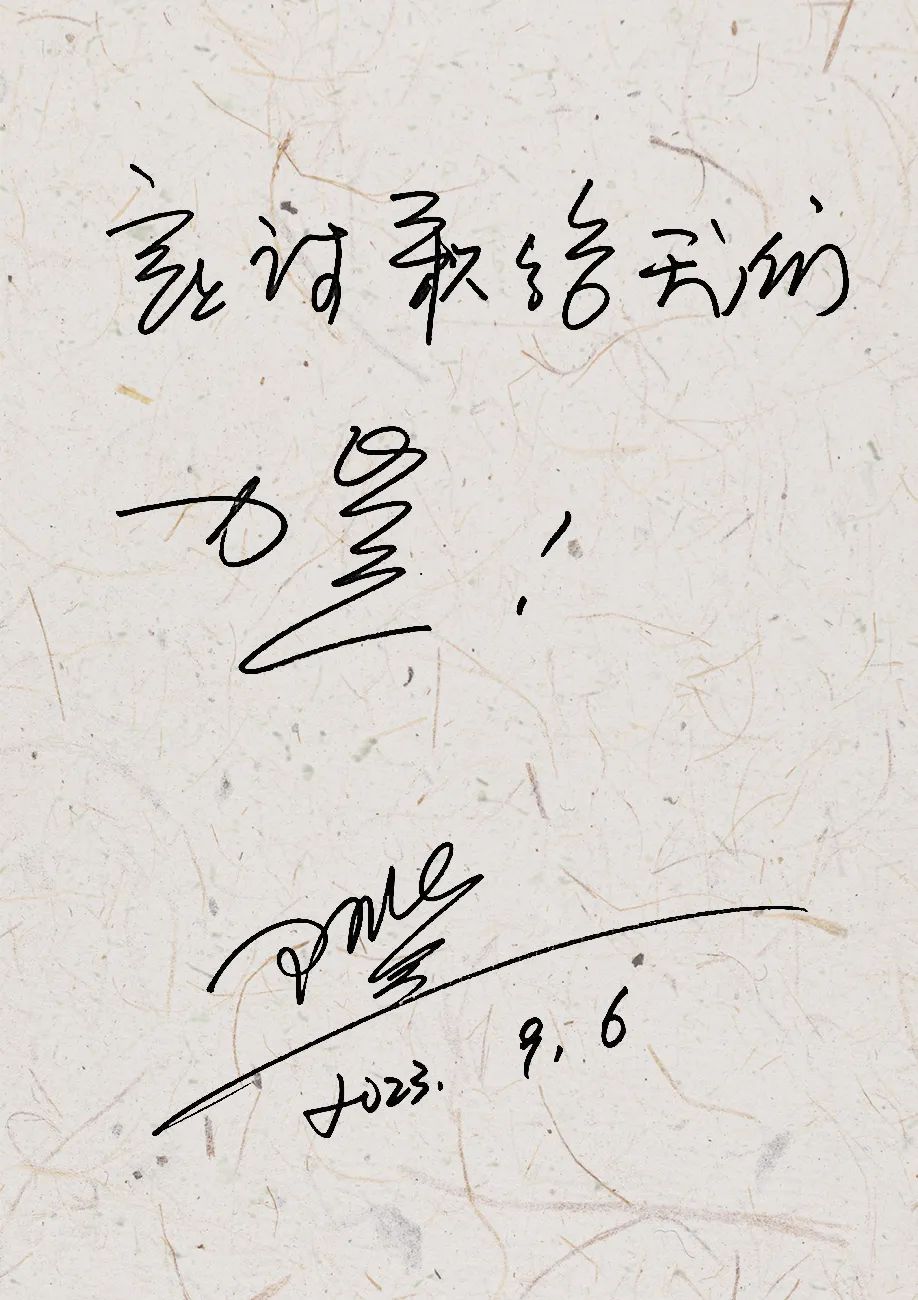 这诗歌给我们
力量！
2023. 9. 6